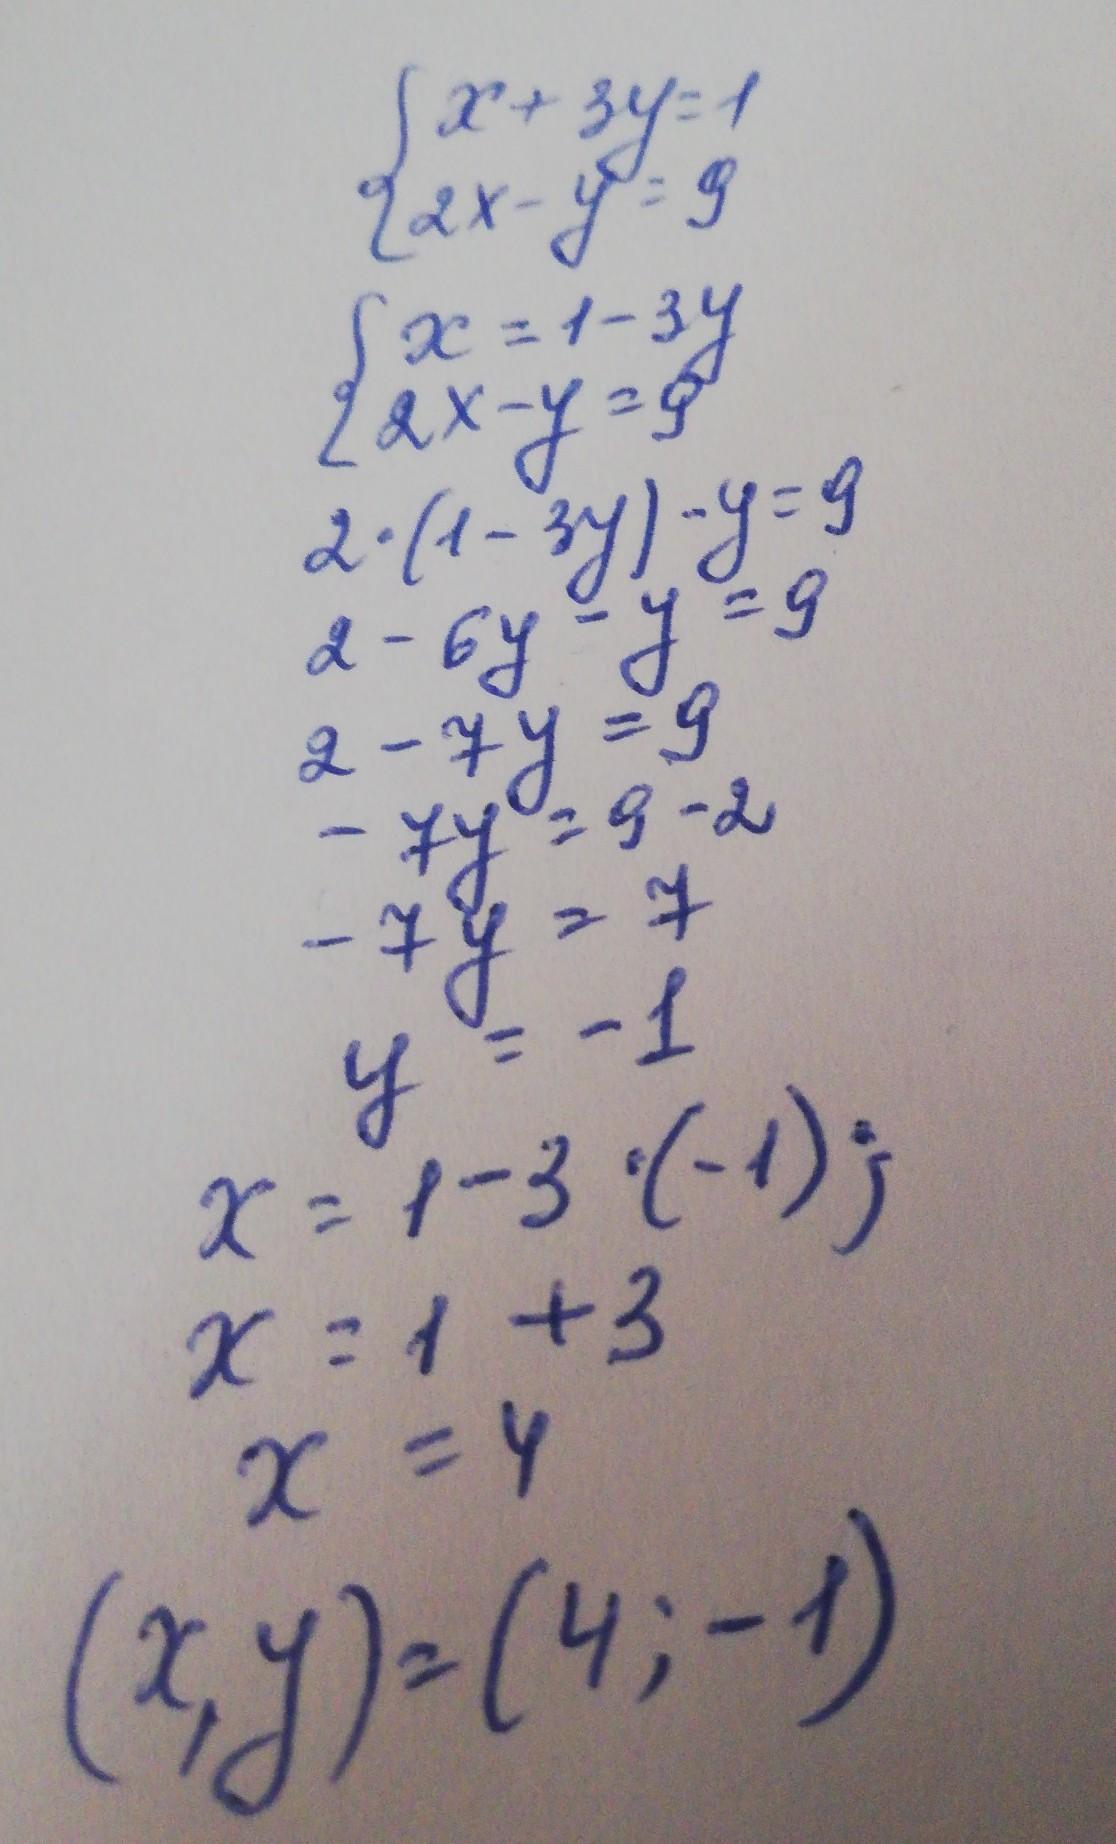 {x + 3y = 1
{2x - y = 9
{x = 1 - 3y
{2x - y = 9
2·(1 - 3y) - y = 9
2 - 6y - y = 9
2 - 7y = 9
- 7y = 9 - 2
- 7y = 7
y = -1
x = 1 - 3·(-1);
x = 1 + 3
x = 4
(x, y) = (4; -1)